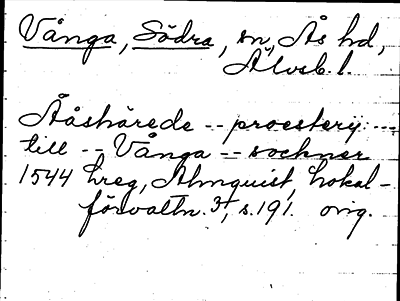 Vånga, Södra, sn, Ås hd,
Älvsb. l.
Ååshärede -- proestery ---
till -- Vånga -- sockner
1544 hreg, Almquist, Lokal-
förvaltn. 3, s. 191. orig.